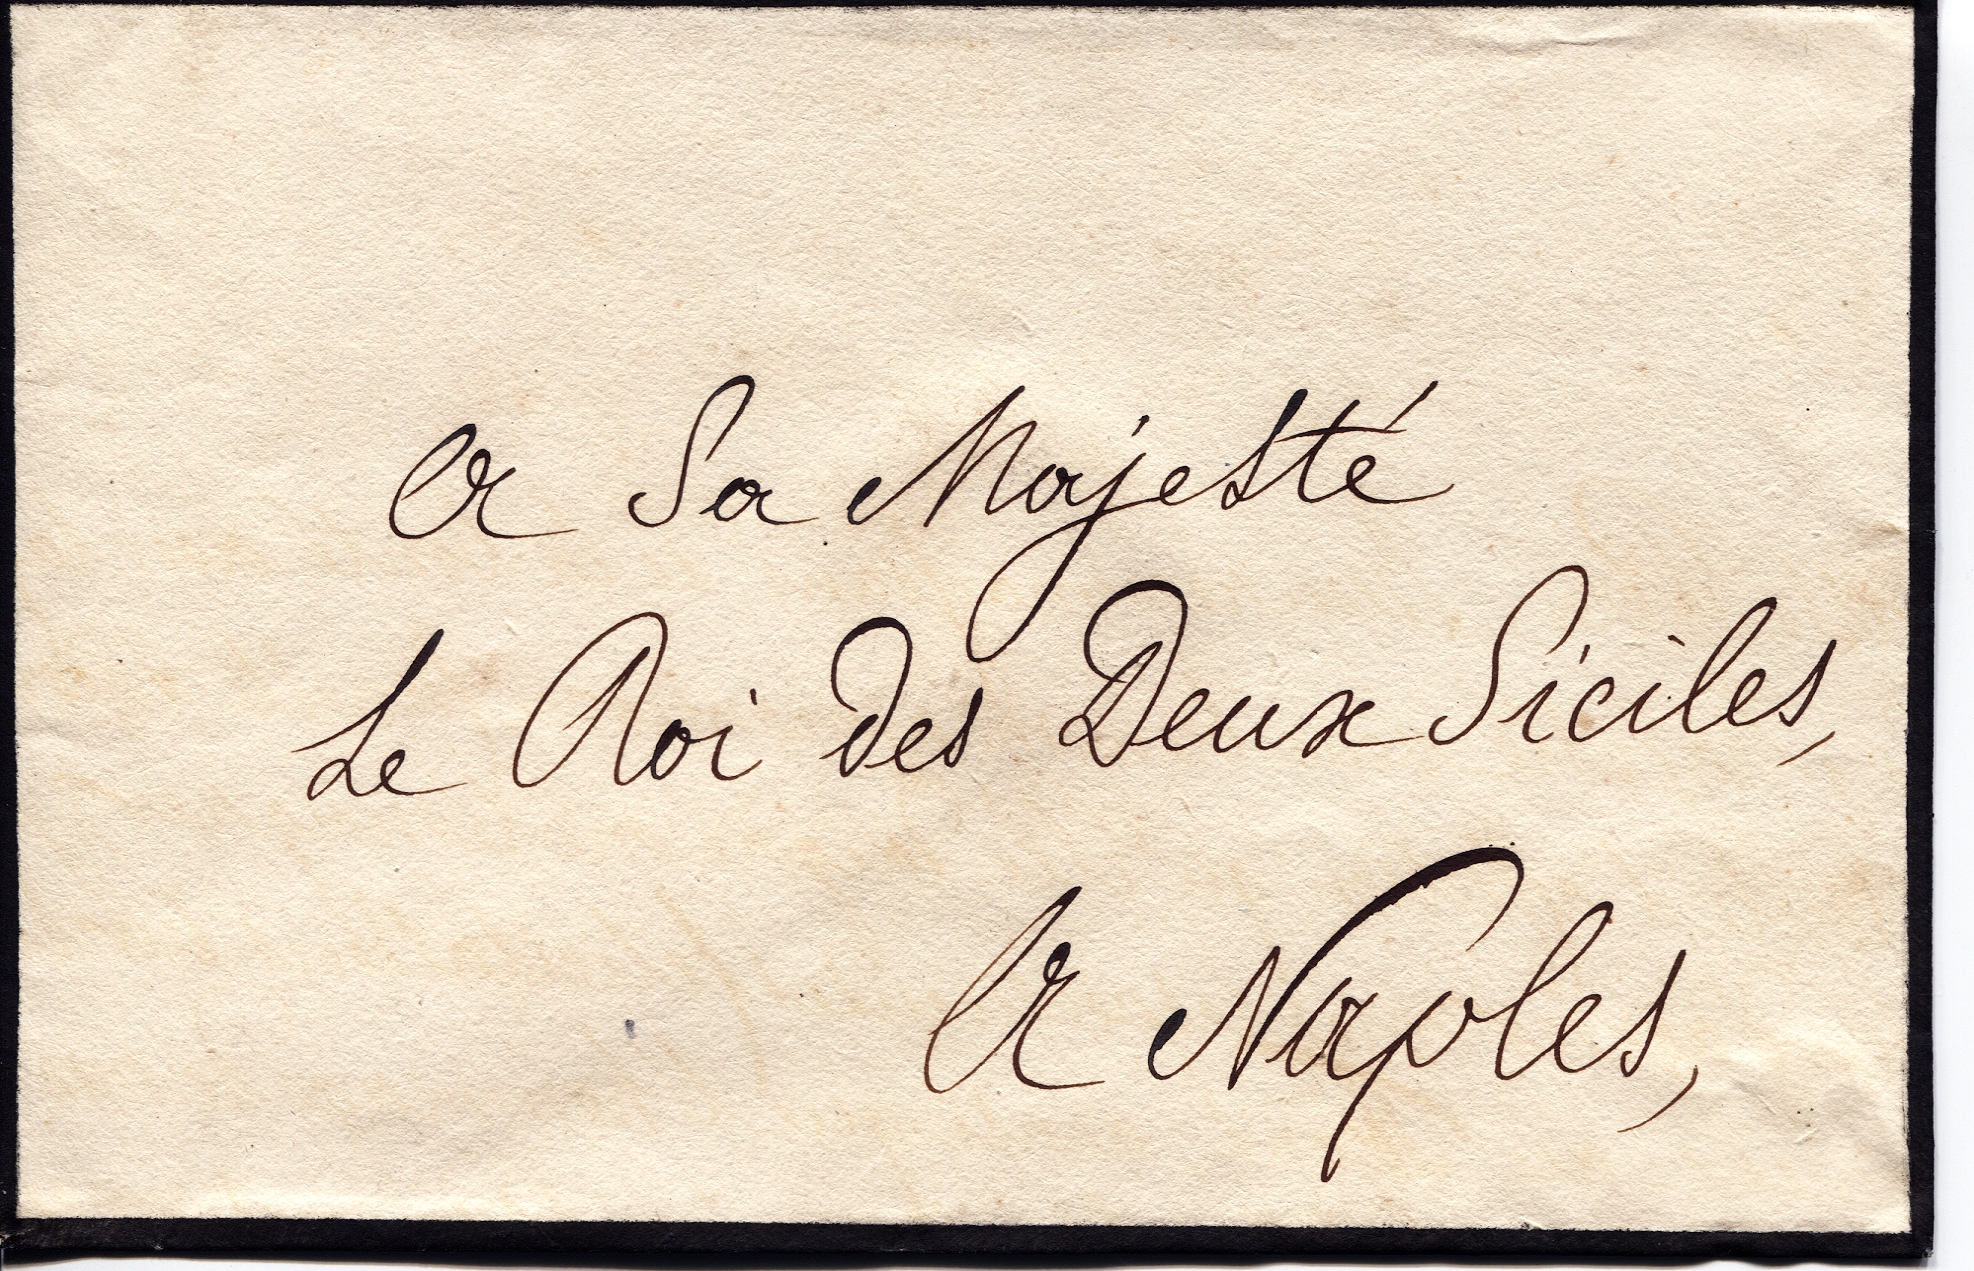 A Sa Majesté
Le Roi des Deux Siciles,
A Naples,